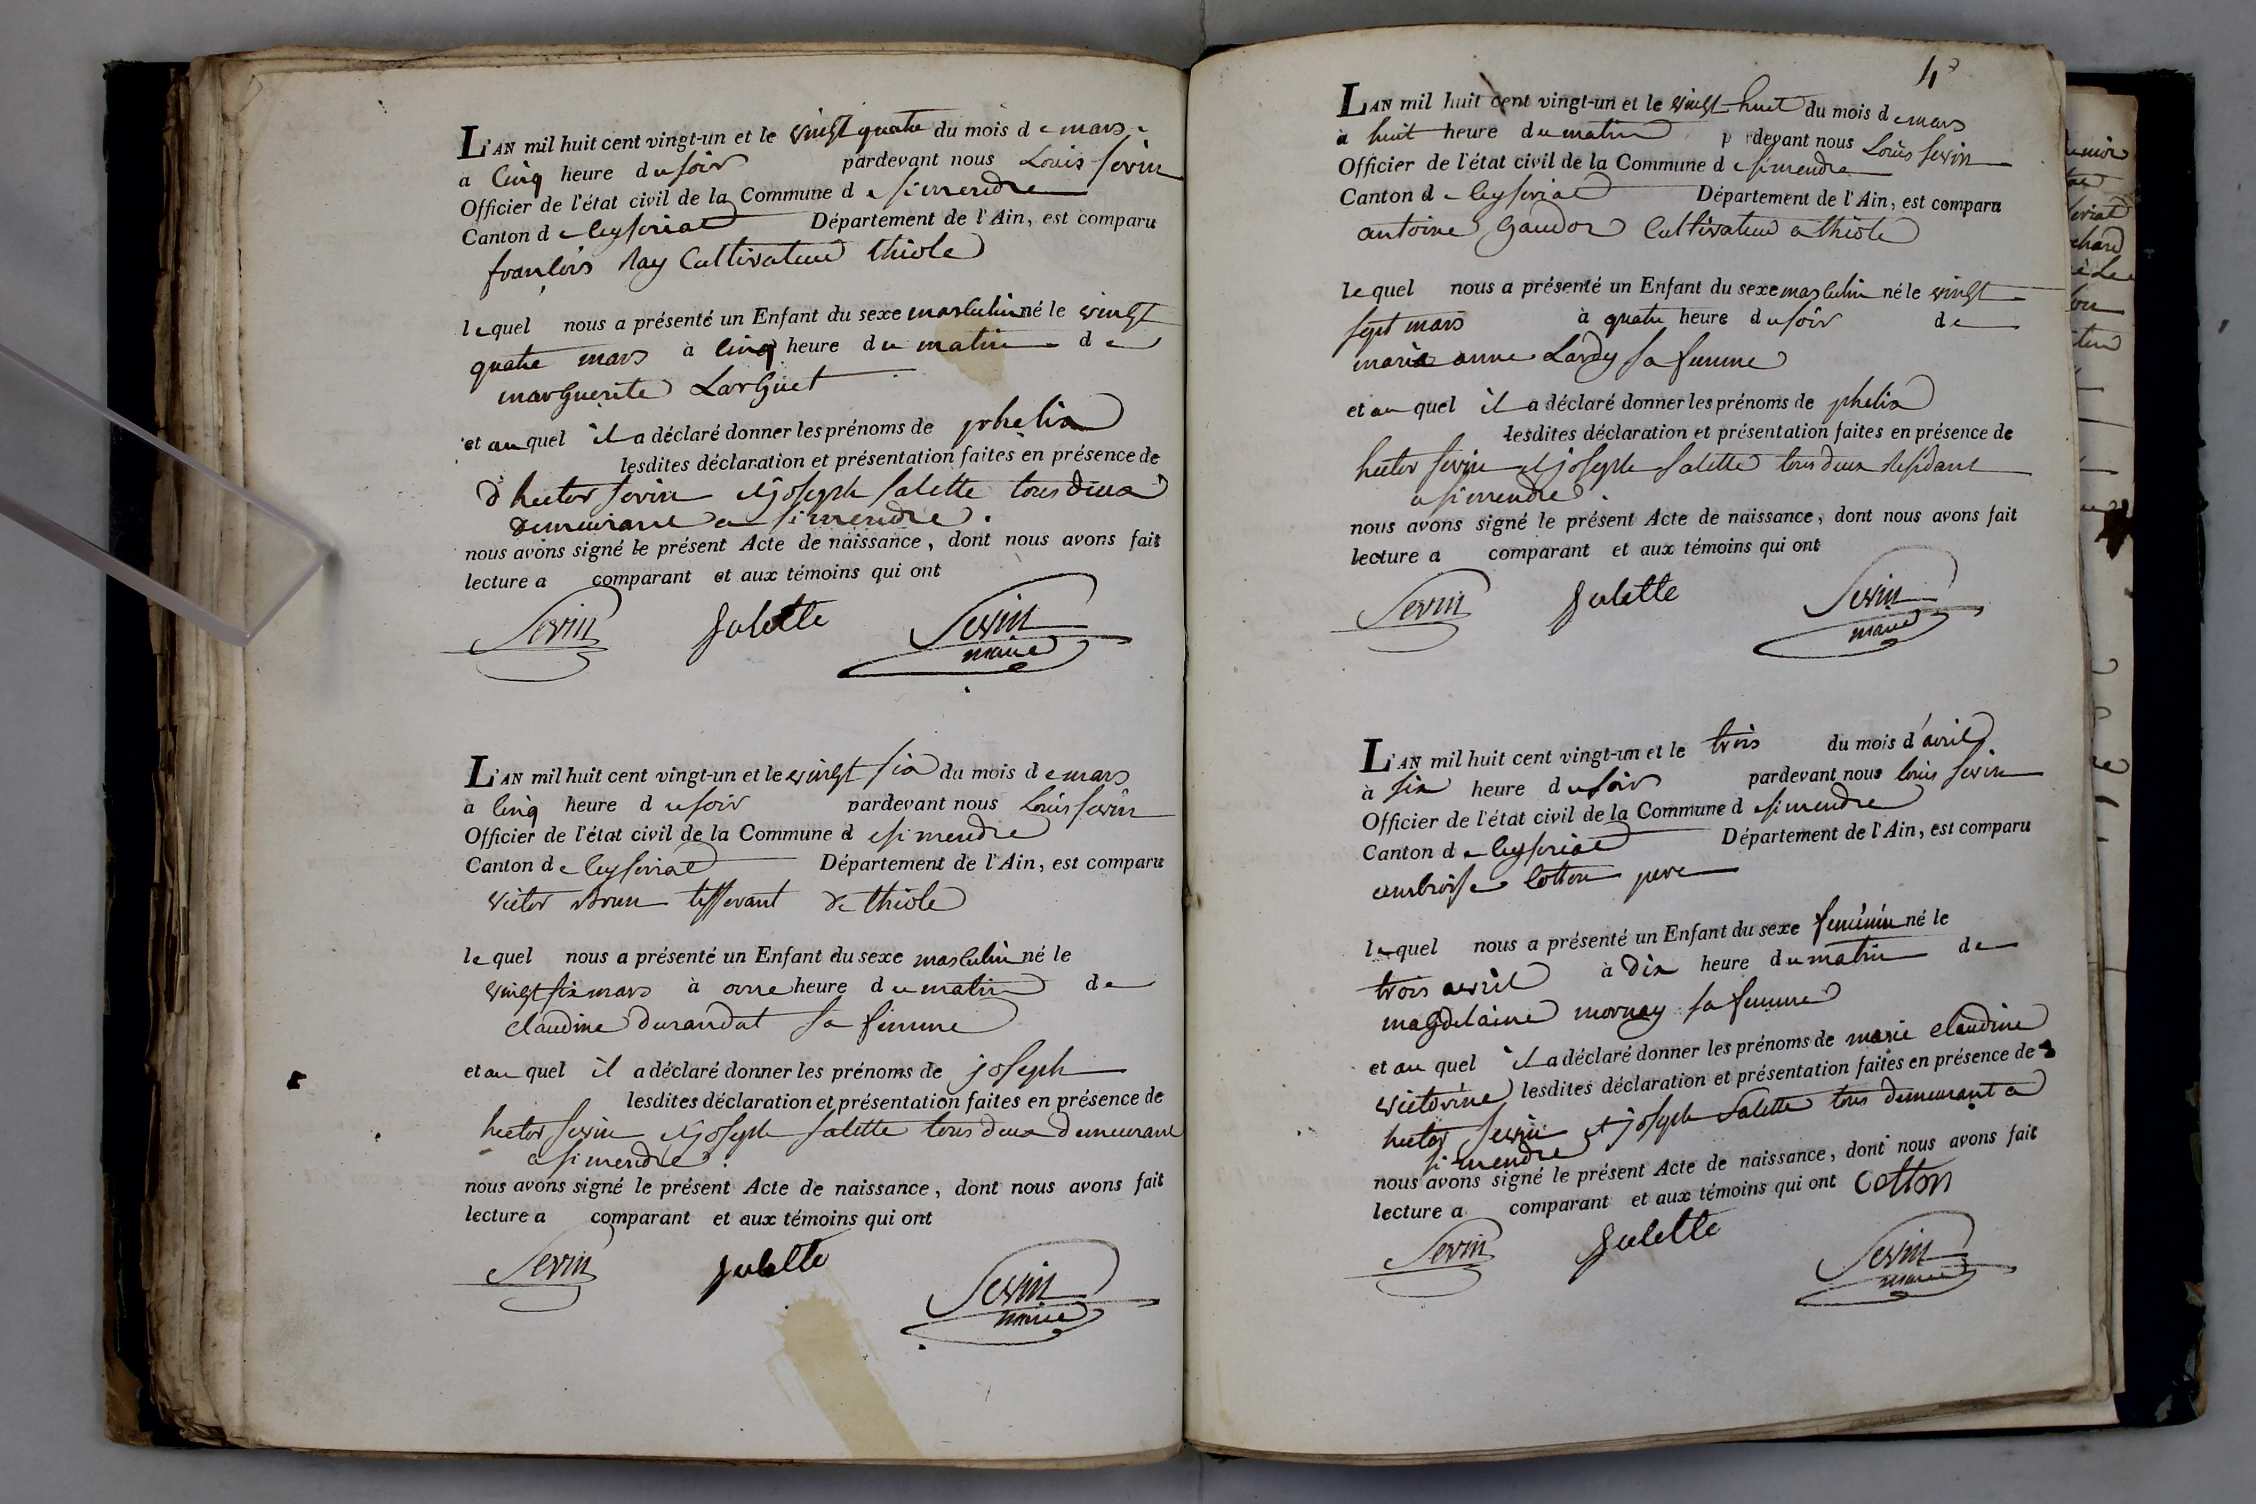 L'AN mil huit cent vingt-un et le vingt quatre du mois de mars
a cinq heure du soir pardevant nous Louis sevin
Officier de l'état civil de la Commune de simendre
Canton de Ceyseriat Département de l'Ain, est comparu
françois Ray Cultivateur thiole
lequel nous a présenté un Enfant du sexe masculin né le vingt
quatre mars à cinq heure du matin de
marguerite Larguet
et au quel il a déclaré donner les prénoms de phelix
lesdites déclaration et présentation faites en présence de
d'hector sevin et joseph salette tous deux
demeurant a simendre.
nous avons signé le présent Acte de naissance, dont nous avons fait
lecture a comparant et aux témoins qui ont
Sevin Salette Sevin
maire
L'AN mil huit cent vingt-un et le vingt six du mois de mars
à cinq heure du soir pardevant nous Louis sevin
Officier de l'état civil de la Commune de simendre
Canton de Ceyseriat Département de l'Ain, est comparu
victor Brun tisserant de thiole
lequel nous a présenté un Enfant du sexe masculin né le
vingt six mars à onze heure du matin de
claudine durandat sa femme
et au quel il a déclaré donner les prénoms de joseph
lesdites déclaration et présentation faites en présence de
hector sevin et joseph salette tous deux demeurant
a simendre.
nous avons signé le présent Acte de naissance, dont nous avons fait
lecture a comparant et aux témoins qui ont
Sevin Salette
Sevin
maire
4
L'AN mil huit cent vingt-un et le vingt huit du mois de mars
à huit heure du matin pardevant nous Louis sevin
Officier de l'état civil de la Commune de simendre
Canton de Ceyseriat Département de l'Ain, est comparu
antoine Gaudoz Cultivateur a thiole
lequel nous a présenté un Enfant du sexe masculin né le vingt
sept mars à quatre heure du soir de
marie anne Lardy sa femme
et au quel il a déclaré donner les prénoms de phelix
lesdites déclaration et présentation faites en présence de
hector sevin et joseph salette tous deux residant
a simendre.
nous avons signé le présent Acte de naissance, dont nous avons fait
lecture a comparant et aux témoins qui ont
Sevin Salette Sevin
maire
L'AN mil huit cent vingt-un et le trois du mois d'avril
à six heure du soir pardevant nous louis sevin
Officier de l'état civil de la Commune de simendre
Canton de Ceyseriat Département de l'Ain, est comparu
ambroise Cotton pere
lequel nous a présenté un Enfant du sexe feminin né le
trois avril à dix heure du matin de
magdelaine mornay sa femme
et au quel il a déclaré donner les prénoms de marie claudine
victorine lesdites déclaration et présentation faites en présence de
hector sevin et joseph salette tous demeurant a
simendre
nous avons signé le présent Acte de naissance, dont nous avons fait
lecture a comparant et aux témoins qui ont Cotton
Sevin Salette Sevin
maire